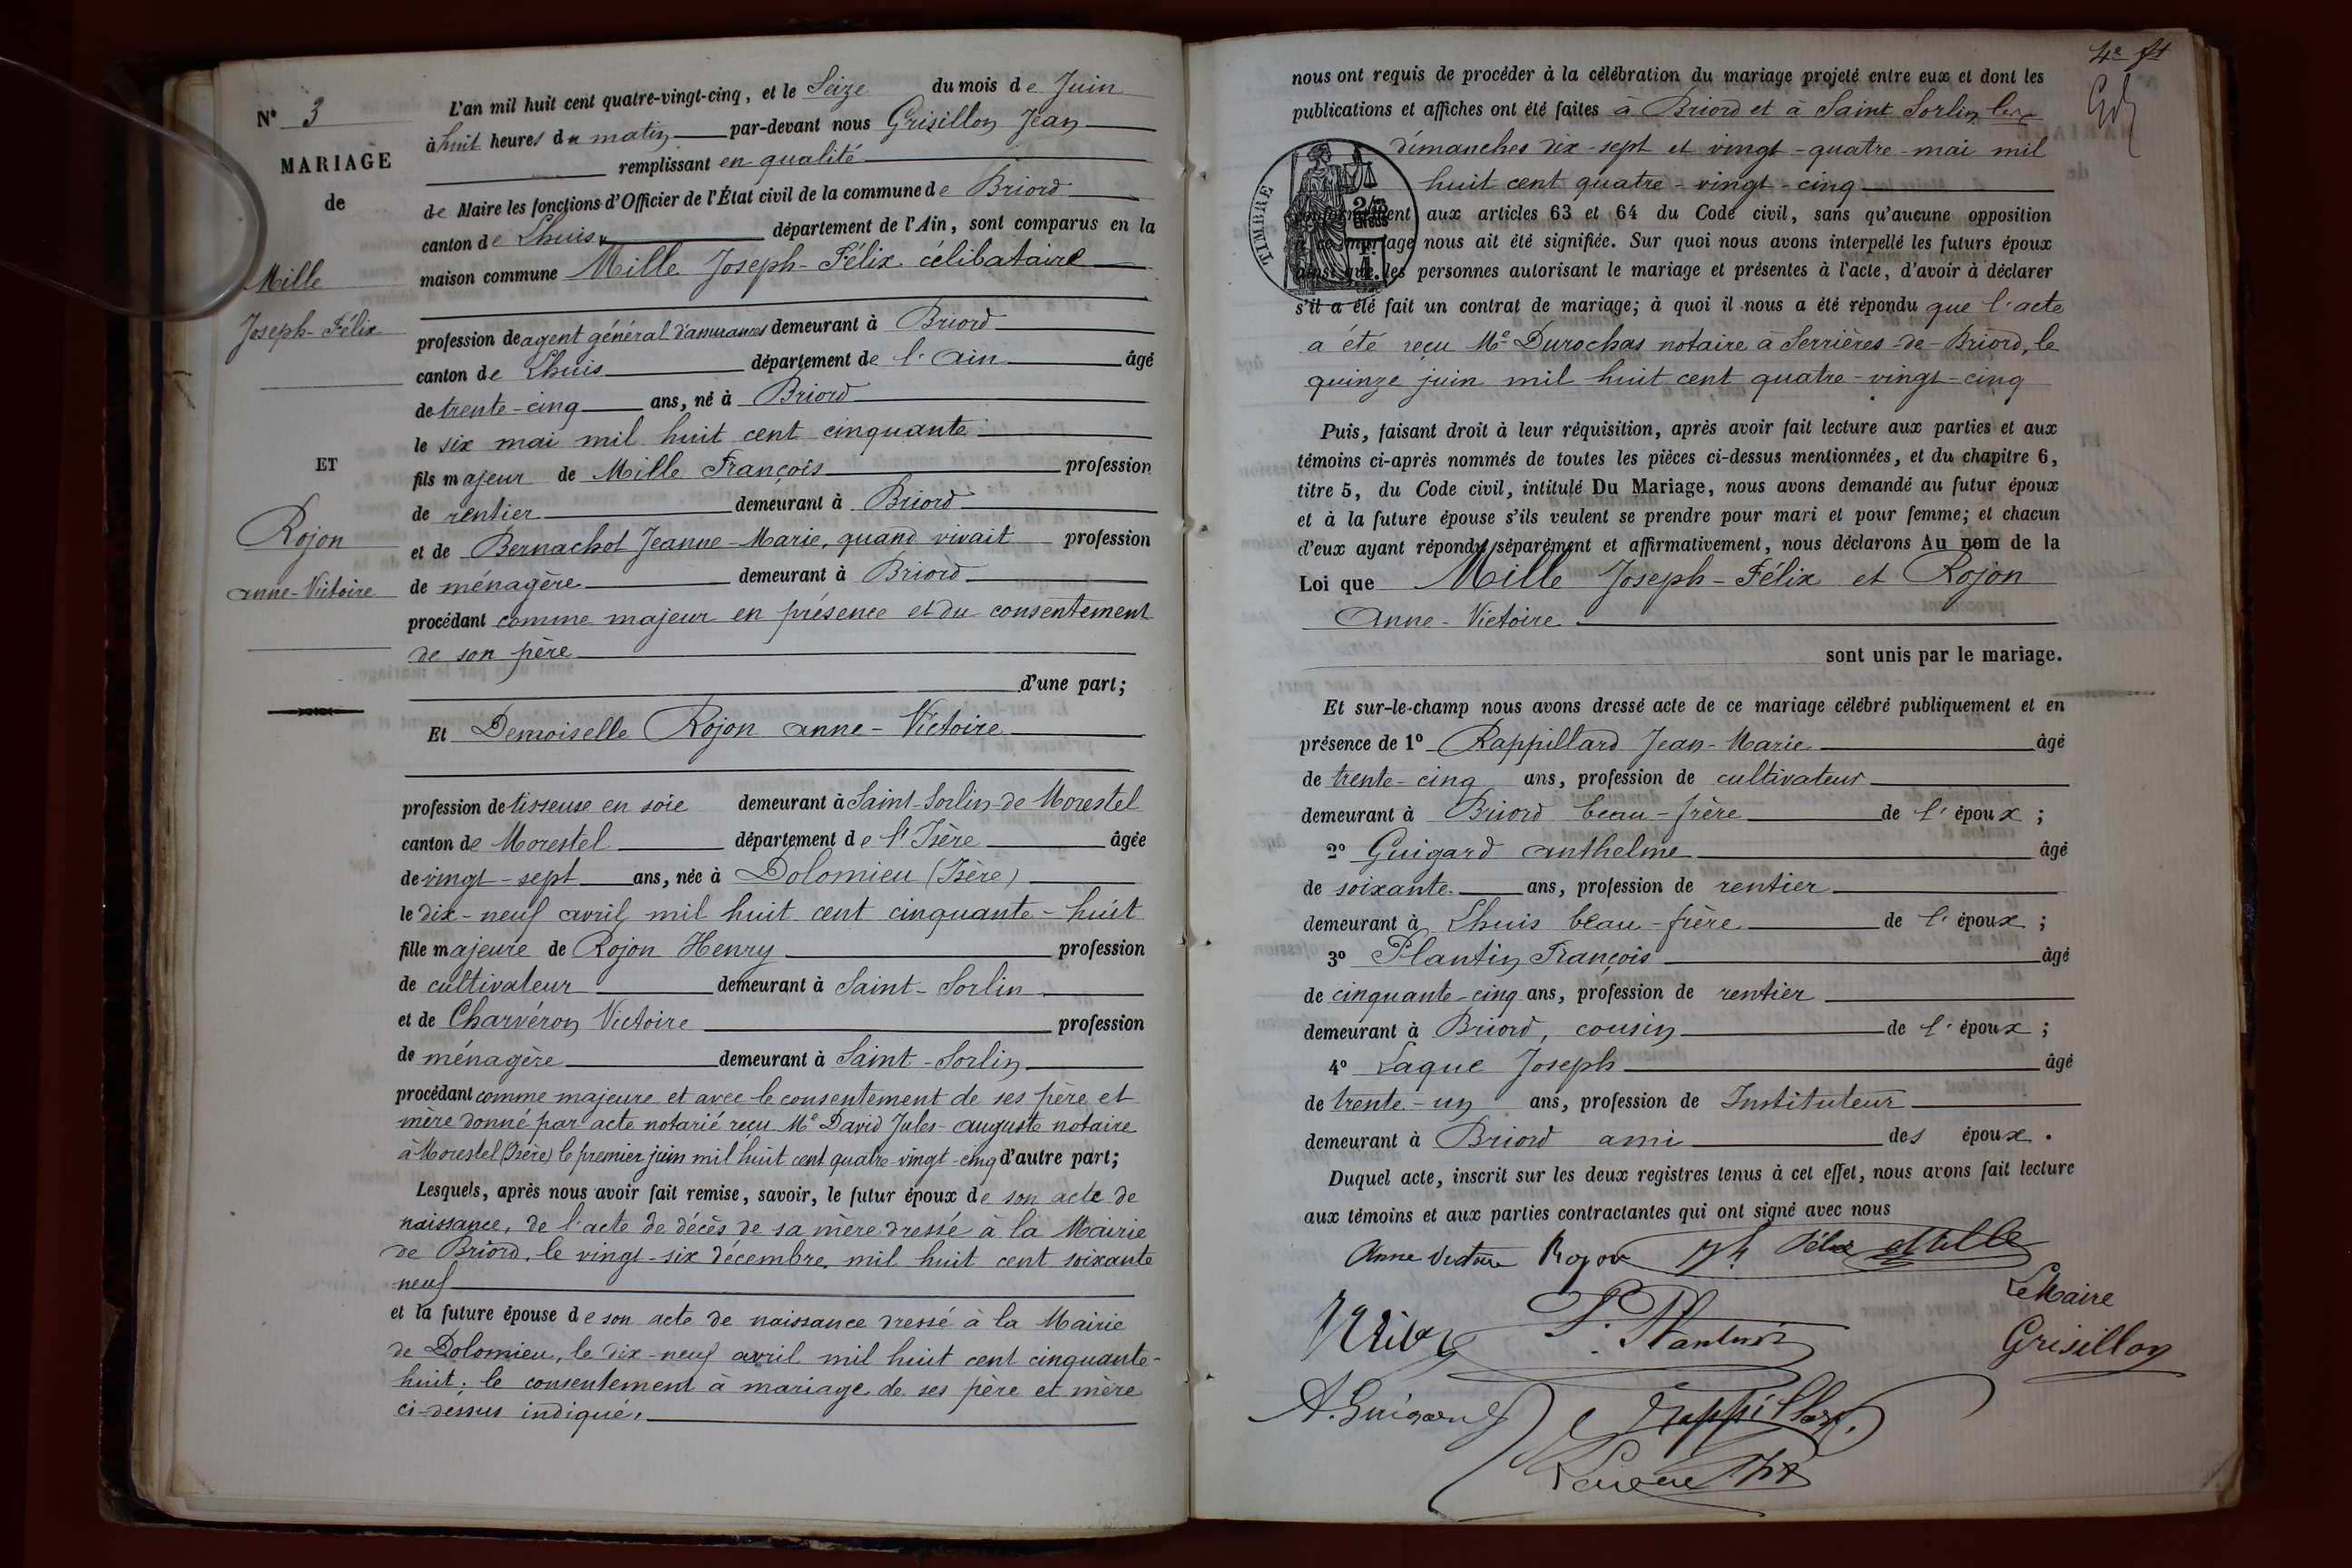 N° 3
MARIAGE
de
Mille
Joseph-Félix
ET
Rojon
Anne-Victoire
L'an mil huit cent quatre-vingt-cinq, et le Seize du mois de Juin
à huit heures du matin par-devant nous Grisillon Jean
remplissant en qualité
de Maire les fonctions d'Officier de l'État civil de la commune de Briord
canton de Lhuis département de l'Ain, sont comparus en la
maison commune Mille Joseph-Félix célibataire
profession de agent général d'assurances demeurant à Briord
canton de Lhuis département de l'Ain âgé
de trente-cinq ans, né à Briord
le six mai mil huit cent cinquante
fils majeur de Mille François profession
de rentier demeurant à Briord
et de Bernachot Jeanne-Marie, quand vivait profession
de ménagère demeurant à Briord
procédant comme majeur en présence et du consentement
de son père
d'une part;
Et Demoiselle Rojon Anne-Victoire
profession de tisseuse en soie demeurant à Saint-Sorlin-de Morestel
canton de Morestel département de l'Isère âgée
de vingt-sept ans, née à Dolomieu (Isère)
le dix-neuf avril mil huit cent cinquante-huit
fille majeure de Rojon Henry profession
de cultivateur demeurant à Saint-Sorlin
et de Charvéron Victoire profession
de ménagère demeurant à Saint-Sorlin
procédant comme majeure et avec le consentement de ses père et
mère donné par acte notarié reçu Me David Jules-Auguste notaire
à Morestel (Isère) le premier juin mil huit cent quatre-vingt-cinq d'autre part;
Lesquels, après nous avoir fait remise, savoir, le futur époux de son acte de
naissance, de l'acte de décès de sa mère dressé à la Mairie
de Briord, le vingt-six décembre mil huit cent soixante
neuf
et la future épouse de son acte de naissance dressé à la Mairie
de Dolomieu, le dix-neuf avril mil huit cent cinquante-
huit; le consentement à mariage de ses père et mère
ci-dessus indiqué.
4e ft
nous ont requis de procéder à la célébration du mariage projeté entre eux et dont les
publications et affiches ont été faites à Briord et à Saint Sorlin les
dimanches dix-sept et vingt-quatre mai mil
huit cent quatre-vingt-cinq
TIMBRE
conformément aux articles 63 et 64 du Code civil, sans qu'aucune opposition
à ce mariage nous ait été signifiée. Sur quoi nous avons interpellé les futurs époux
ainsi que les personnes autorisant le mariage et présentes à l'acte, d'avoir à déclarer
s'il a été fait un contrat de mariage; à quoi il nous a été répondu que l'acte
a été reçu Me Durochas notaire à Serrières-de-Briord, le
quinze juin mil huit cent quatre-vingt-cinq
Puis, faisant droit à leur réquisition, après avoir fait lecture aux parties et aux
témoins ci-après nommés de toutes les pièces ci-dessus mentionnées, et du chapitre 6,
titre 5, du Code civil, intitulé Du Mariage, nous avons demandé au futur époux
et à la future épouse s'ils veulent se prendre pour mari et pour femme; et chacun
d'eux ayant répondu séparément et affirmativement, nous déclarons Au nom de la
Loi que Mille Joseph-Félix et Rojon
Anne-Victoire
sont unis par le mariage.
Et sur-le-champ nous avons dressé acte de ce mariage célébré publiquement et en
présence de 1° Rappillard Jean-Marie âgé
de trente-cinq ans, profession de cultivateur
demeurant à Briord beau-frère de l'époux;
2° Guigard Anthelme âgé
de soixante ans, profession de rentier
demeurant à Lhuis beau-frère de l'époux;
3° Plantin François âgé
de cinquante-cinq ans, profession de rentier
demeurant à Briord, cousin de l'époux;
4° Laque Joseph âgé
de trente-un ans, profession de Instituteur
demeurant à Briord ami des époux.
Duquel acte, inscrit sur les deux registres tenus à cet effet, nous avons fait lecture
aux témoins et aux parties contractantes qui ont signé avec nous
Anne Victoire Rojon Jh Félix Mille
Le Maire
F. Plantin
Grisillon
A. Guigard
Rappillard